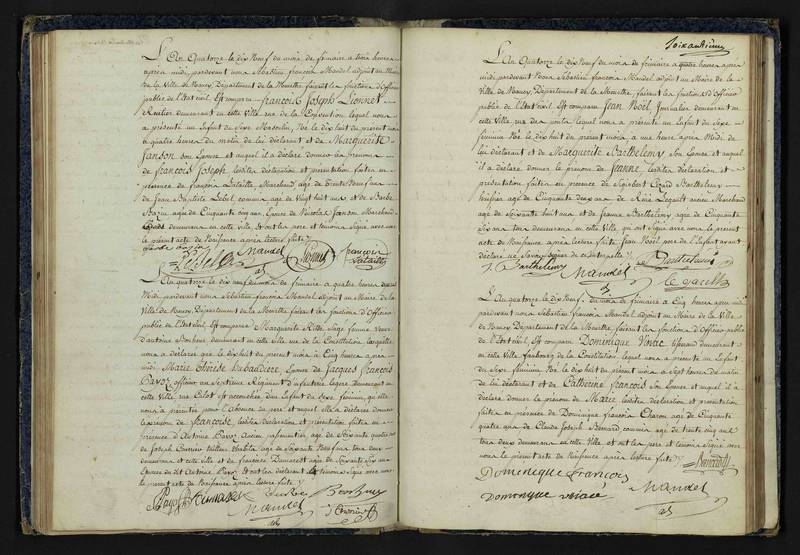 L'An Quatorze le dix Neuf du mois de frimaire a trois heures
après midi, pardevant nous Sébastien françois Mandel adjoint au Maire
de la Ville de Nancy, Département de la Meurthe faisant les fonctions d'Officier
public de l'Etat civil Est comparu françois Joseph Lionnet
Roulier demeurant en cette Ville rue de la Constitution lequel nous
a présenté un Enfant du Sexe Masculin, Né le dix huit du présent mois
a quatre heures du matin de lui déclarant et de Marguerite
Janson son Epouse et auquel il a déclaré donner les prénoms
de françois Joseph lesdites déclaration et présentation faites en
présence de françois Lataille, Marchand agé de Trente Neuf ans
de Jean Baptiste Lebel, commis agé de vingt huit ans et de Barbe
agée de Cinquante cinq ans, Epouse de Nicolas Janson Marchand
demeurans en cette Ville, et ont les père et témoins Signé avec nous
le présent acte de Naissance après lecture faite
Lebel Mandel Lionnet françois Lataille
L'an quatorze le dix neuf du mois de frimaire a quatre heures après
Midi, pardevant nous Sébastien françois Mandel adjoint au Maire de la
Ville de Nancy, Département de la Meurthe, faisant les fonctions d'Officier
public de l'Etat civil, Est comparue Marguerite Sage femme Veuve
d'antoine demeurant en cette Ville rue de la Constitution laquelle
nous a déclaré que le dix huit du présent mois à Cinq heures après
midi Marie thérèse Labaudiere, Epouse de Jacques françois
Bayot officier au Septieme Régiment d'infanterie legere demeurant en
cette Ville est accouchée d'un Enfant du Sexe féminin, qu'elle
nous a présenté pour l'absence du père et auquel elle a déclaré donner
le prénom de françoise, lesdites déclaration et présentation faites en
présence d'Antoine Bayot Ancien passementier, agé de Soixante quatre ans
de Joseph agé de Soixante Neuf ans tous deux
demeurans en cette ville et de françoise Dumarest agée de Soixante Six ans
Epouse du dit Antoine Bayot Et ont les déclarant et témoins Signé avec nous
le présent acte de Naissance après lecture faite
Bayot Dumarest
Mandel
Soixantieme
L'An quatorze le dix Neuf du mois de frimaire a quatre heures après
midi pardevant Nous Sébastien françois Mandel adjoint au Maire de la
Ville de Nancy, Département de la Meurthe, faisant les fonctions d'Officier
public de l'Etat civil Est comparu Jean Noël, Journalier demeurant en
cette Ville rue des lequel nous a présenté un Enfant du Sexe
féminin Né le dix huit du présent mois, a une heure après Midi de
lui déclarant et de Marguerite Barthelemy son Epouse et auquel
il a déclaré donner le prénom de Jeanne, lesdites déclaration et
présentation faites en présence de Sigisbert Barthelemy
huissier agé de Cinquante deux ans de René Legault ancien Marchand
agé de Soixante huit ans et de Jeanne Barthelemy agée de Cinquante
Six ans tous demeurans en cette Ville, qui ont Signé avec nous le présent
acte de Naissance après lecture faite Jean Noël père de l'Enfant ayant
déclaré ne Savoir Signer de ce Interpellé
J. Barthelemy Mandel Barthelemy
Legault
L'an quatorze le dix Neuf du mois de frimaire a Cinq heures après midi
pardevant Nous Sébastien françois Mandel adjoint au Maire de la Ville
de Nancy Département de la Meurthe, faisant les fonctions d'Officier public
de l'Etat civil, Est comparu Dominique tisserand demeurant
en cette Ville fauxbourg de la Constitution, lequel nous a présenté un Enfant
du Sexe féminin Né le dix huit du présent mois a Sept heures du matin
de lui déclarant et de Catherine françois Son Epouse et auquel il a
déclaré donner le prénom de Marie, lesdites déclaration et présentation
faites en présence de Dominique françois Charon agé de Cinquante
quatre ans de Claude Joseph Bernard commis agé de trente cinq ans
tous deux demeurans en cette Ville et ont les père et témoins Signé avec
nous le présent acte de Naissance après lecture faite
Bernard
Domenique François
Domonque Mandel